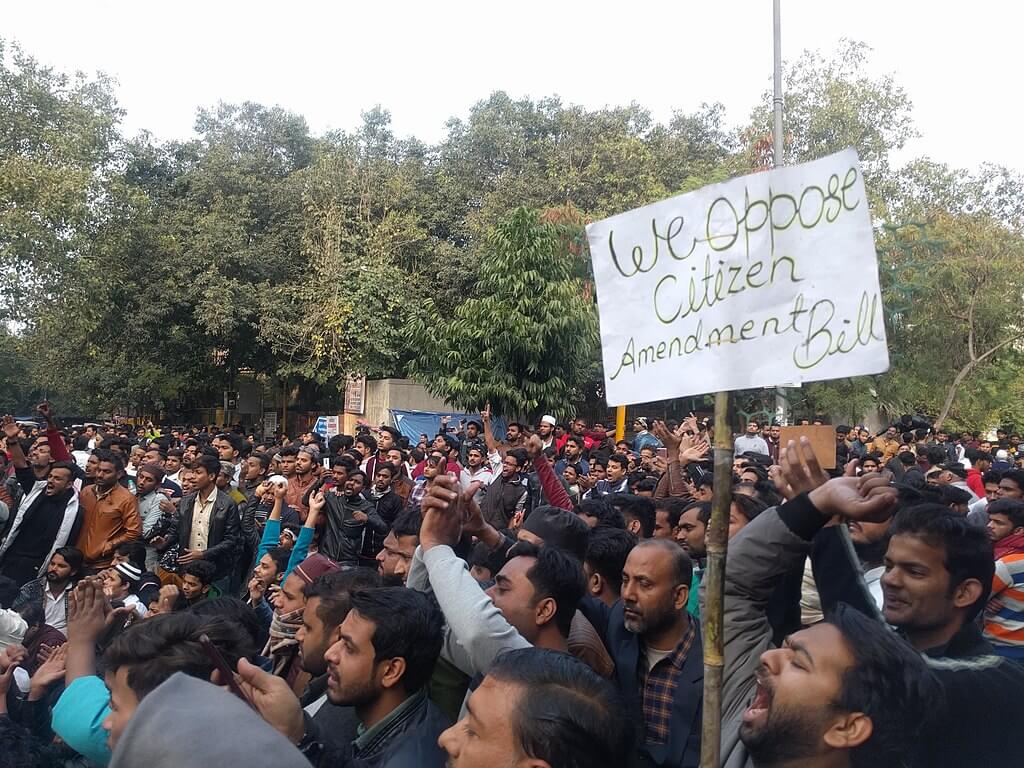 We Oppose
Citizen
Amendment Bill